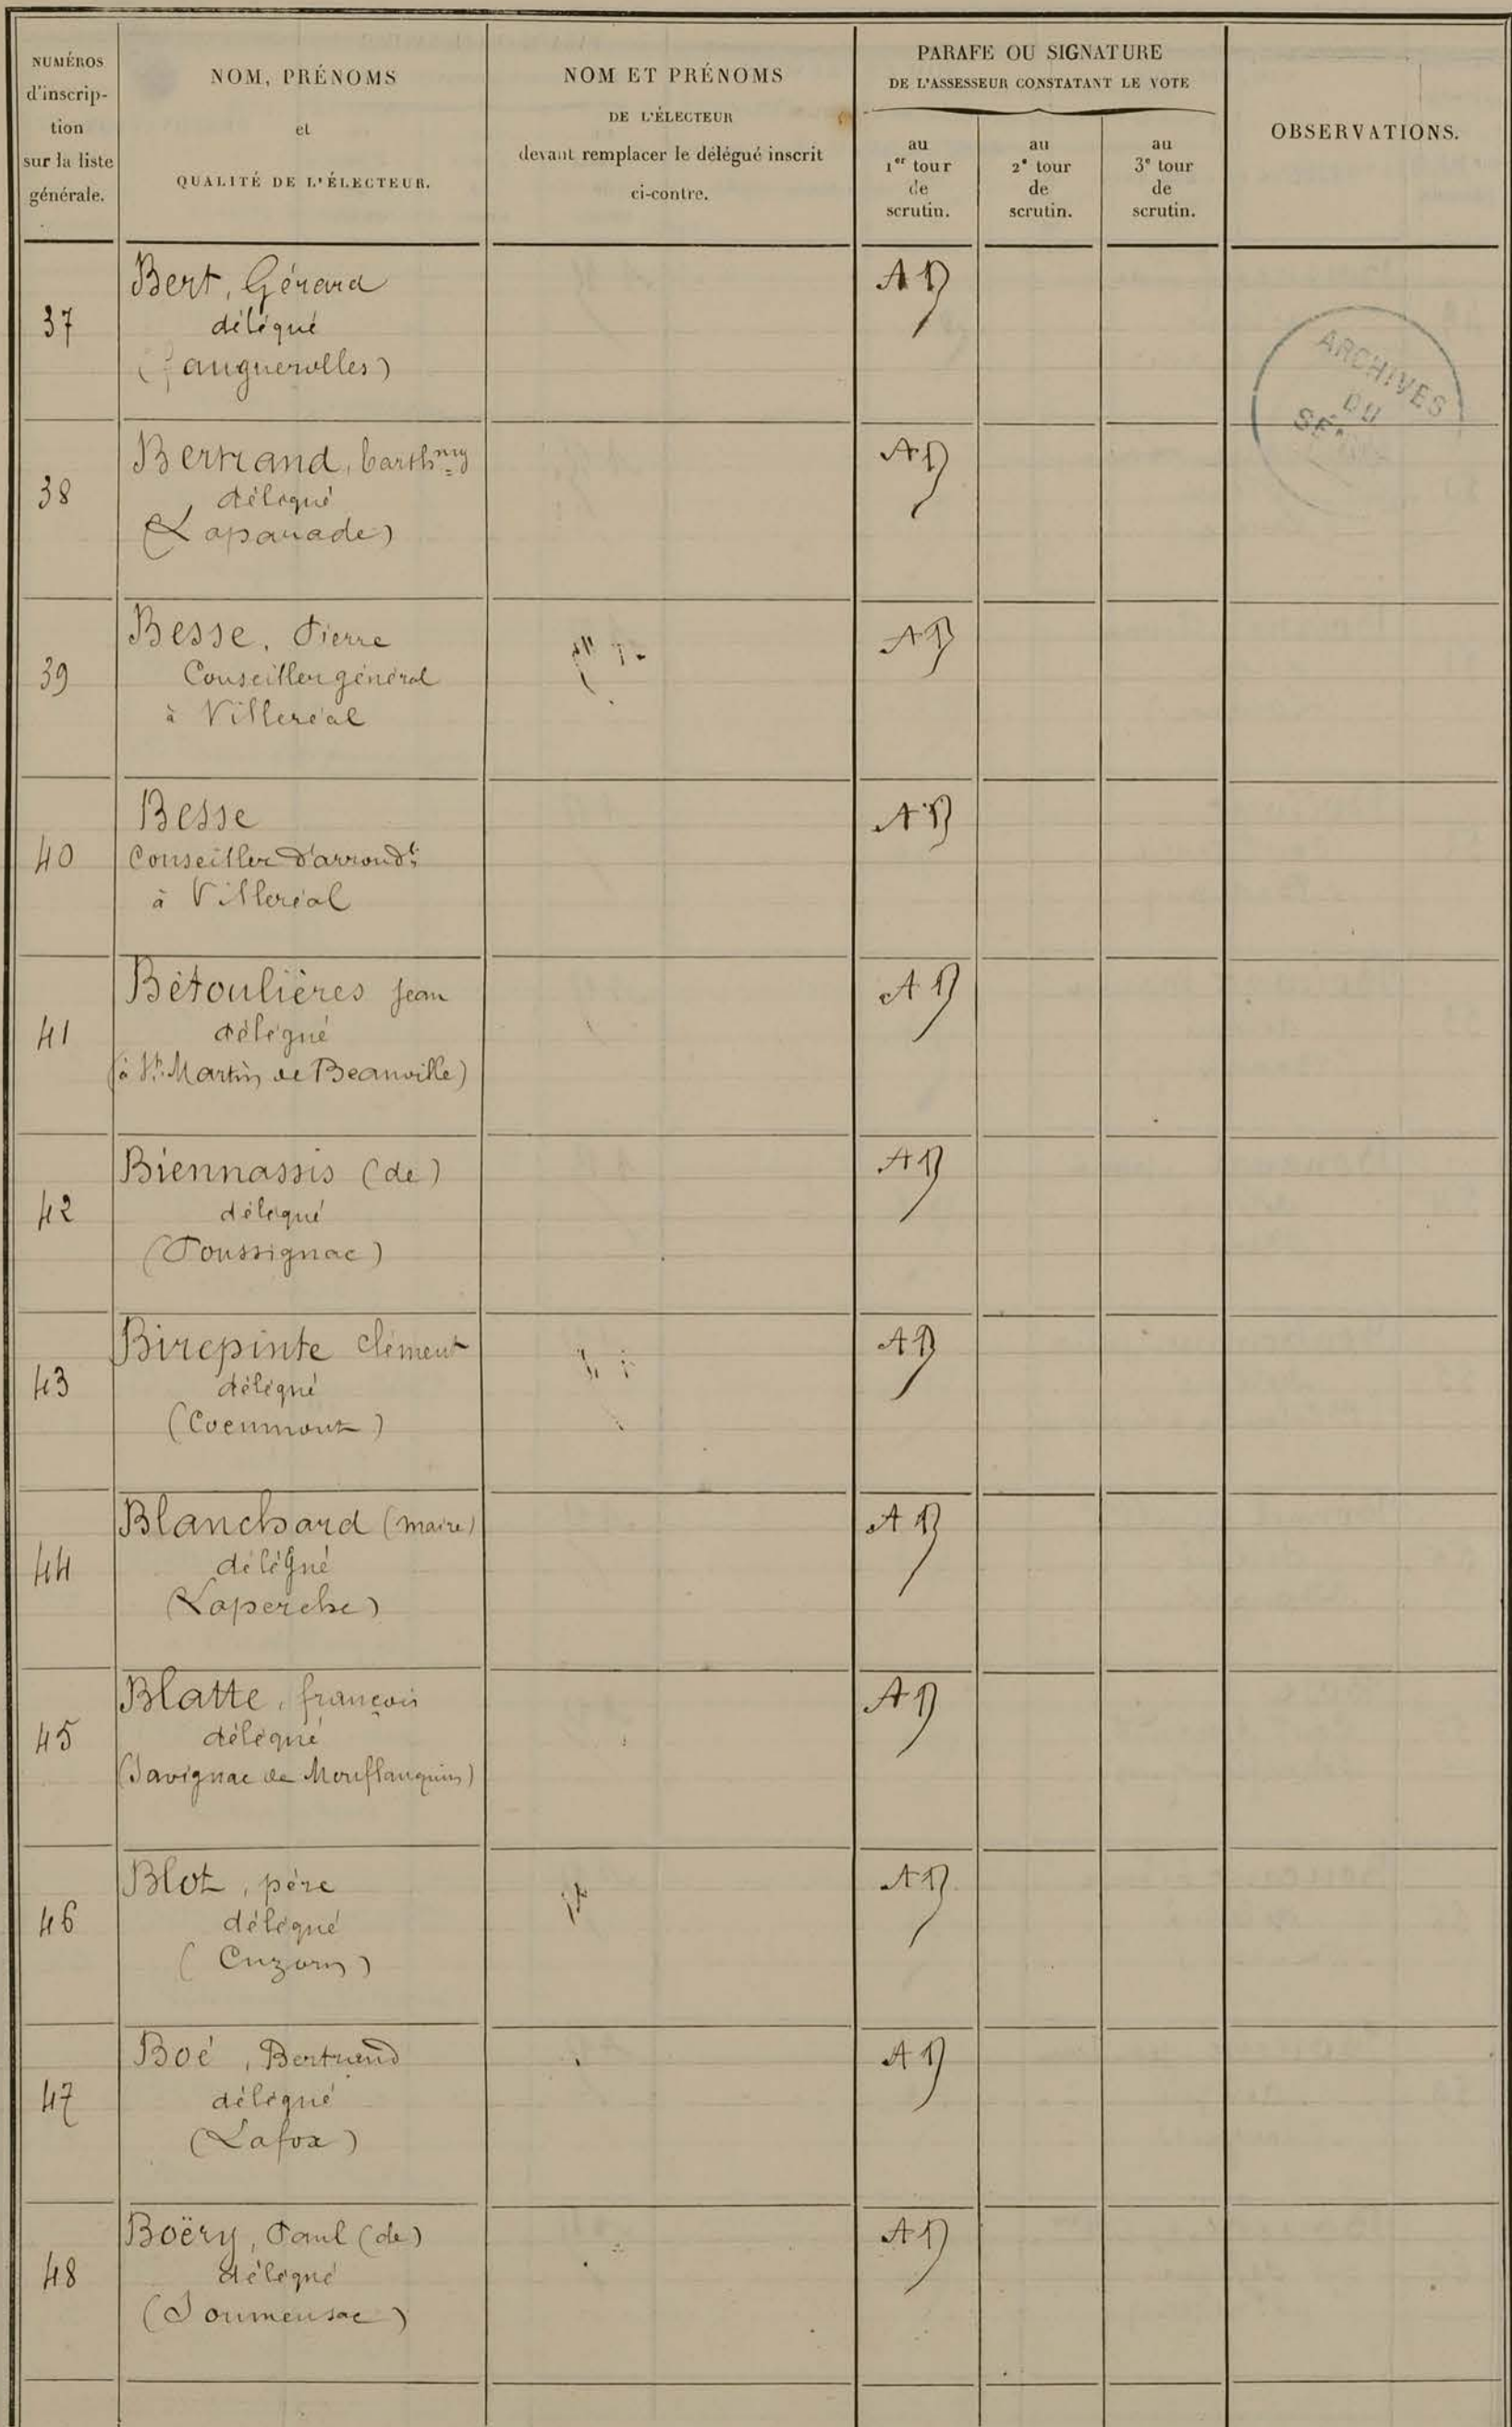 NUMÉROS
d'inscrip-
tion
sur la liste
générale.
NOM, PRÉNOMS
et
QUALITÉ DE L'ÉLECTEUR.
NOM ET PRÉNOMS
DE L'ÉLECTEUR
devant remplacer le délégué inscrit
ci-contre.
PARAFE OU SIGNATURE
DE L'ASSESSEUR CONSTATANT LE VOTE
au
1er tour
de
scrutin.
au
2e tour
de
scrutin.
au
3e tour
de
scrutin.
OBSERVATIONS.
ARCHIVES
DU
37
Bert, Gérard
délégué
(fauguerolles)
38
Bertrand, barthmy
délégué
(Laparade)
39
Besse, Pierre
Conseiller général
à Villeréal
40
Besse
Conseiller d'arrondt
à Villeréal
41
Bétoulières Jean
délégué
(à St. Martin de Beauville)
42
Biennassis (de)
délégué
(Poussignac)
43
Birepinte Clément
délégué
(Cocumont)
44
Blanchard (maire)
délégué
(Laperche)
45
Blatte, françois
délégué
(Savignac de Monflanquin)
46
Blot, père
délégué
(Cuzorn)
47
Boé, Bertrand
délégué
(Lafox)
48
Boëry, Paul (de)
délégué
(Soumensac)